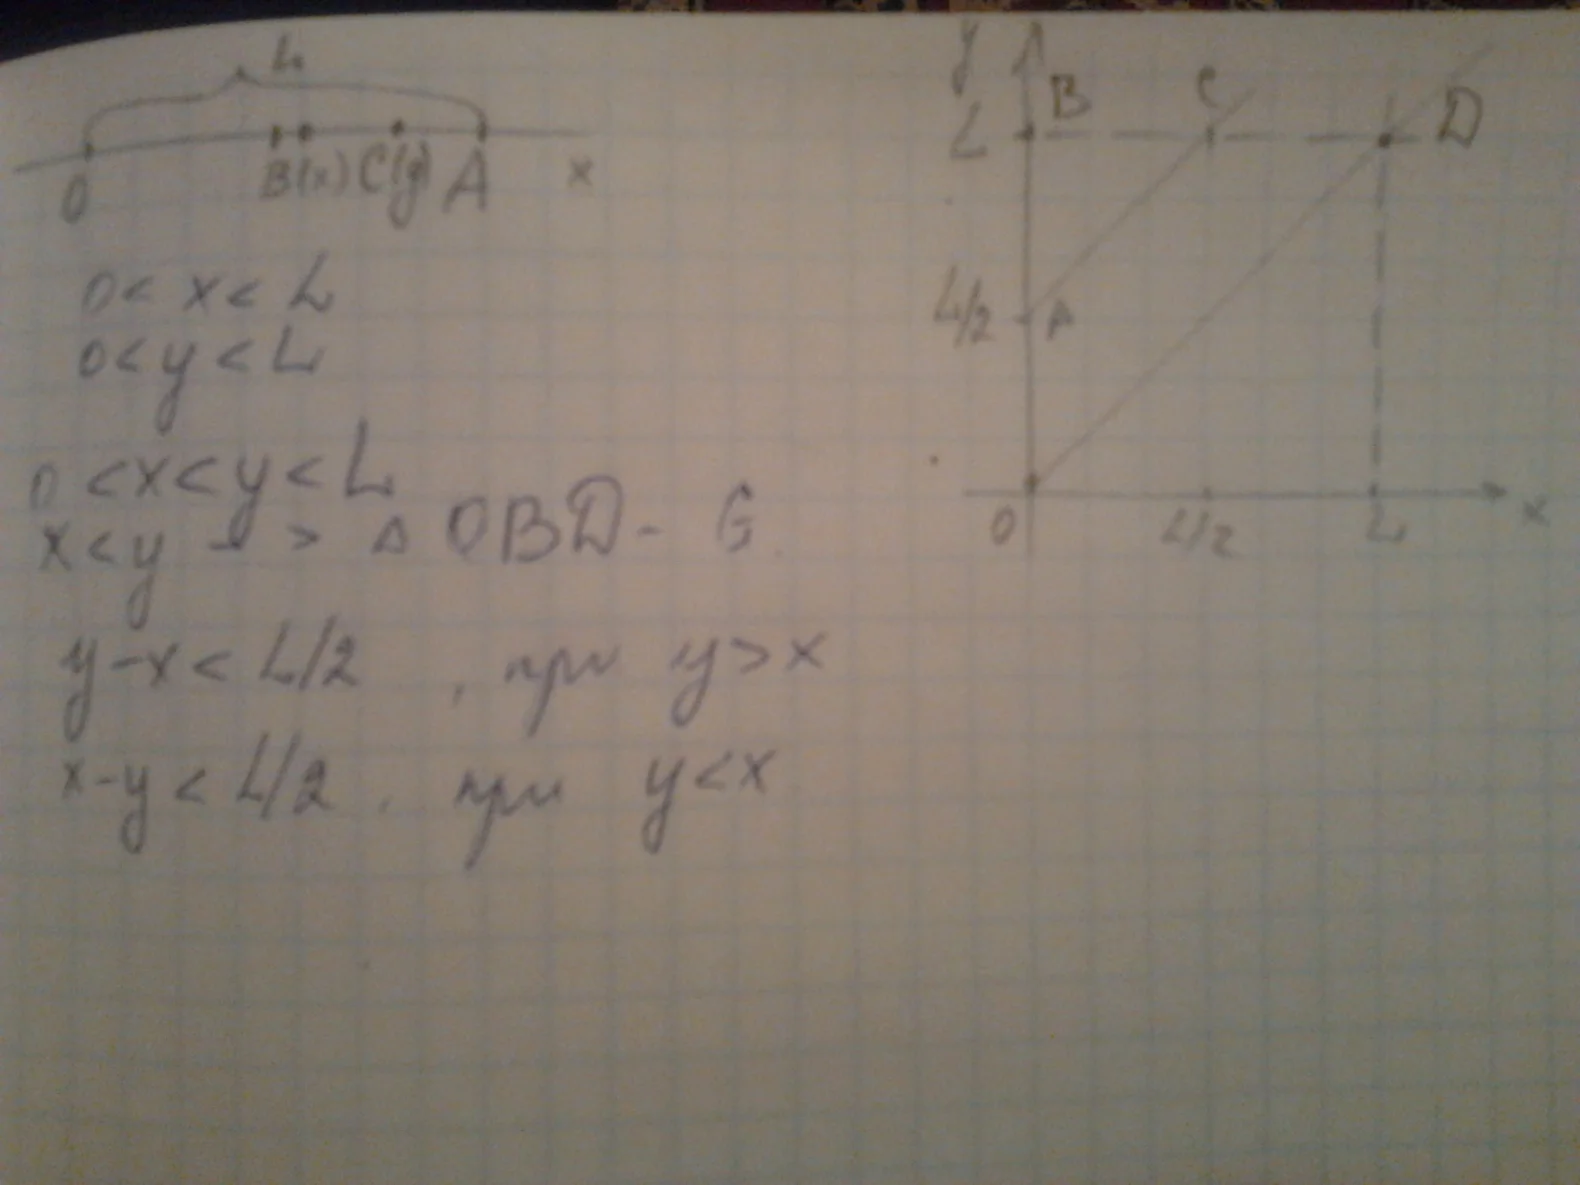 L
0 B(x) C(y) A x
0 < x < L
0 < y < L
0 < x < y < L
x < y -> Δ OBD - G
y - x < L/2 , при y > x
x - y < L/2 , при y < x
y
L B C D
L/2 A
0 L/2 L x